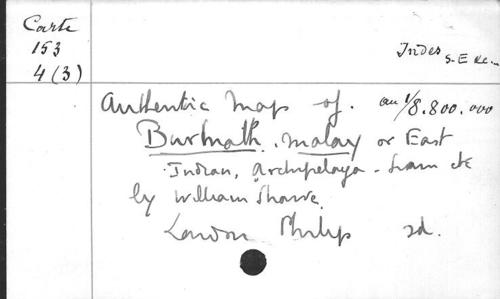 Carte
153
4 (3)
Indes S-E &c.
Authentic map of. au 1/8.800.000
Burmath, malay or East
Indian, Archipelaga - Siam etc
by William Shawe.
London Philip sd.